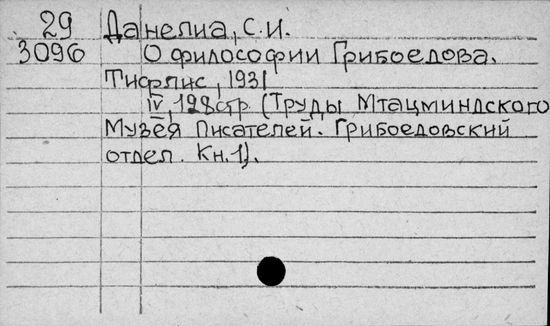 29 Данелиа, С.И.
3096 О философии Грибоедова.
Тифлис, 1931
IV, 128стр. (Труды Мтацминдского
Музея Писателей. Грибоедовский
отдел. Кн.1).